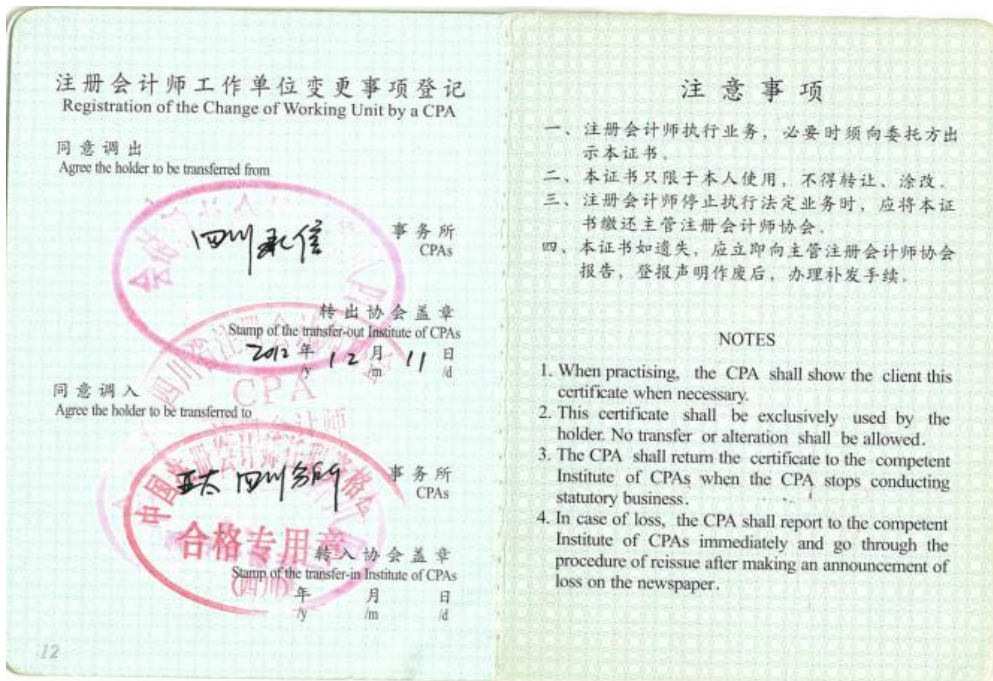 注册会计师工作单位变更事项登记
Registration of the Change of Working Unit by a CPA
同意调出
Agree the holder to be transferred from
四川承信
事务所
CPAs
转出协会盖章
Stamp of the transfer-out Institute of CPAs
2012 年 12 月 11 日
/y /m /d
四川省注册会计师
CPA
同意调入
Agree the holder to be transferred to
亚太 四川分所
事务所
CPAs
中国注册会计师
合格专用章
(四川)
转入协会盖章
Stamp of the transfer-in Institute of CPAs
年 月 日
/y /m /d
12
注意事项
一、注册会计师执行业务，必要时须向委托方出
示本证书。
二、本证书只限于本人使用，不得转让、涂改。
三、注册会计师停止执行法定业务时，应将本证
书缴还主管注册会计师协会。
四、本证书如遗失，应立即向主管注册会计师协会
报告，登报声明作废后，办理补发手续。
NOTES
1. When practising, the CPA shall show the client this
certificate when necessary.
2. This certificate shall be exclusively used by the
holder. No transfer or alteration shall be allowed.
3. The CPA shall return the certificate to the competent
Institute of CPAs when the CPA stops conducting
statutory business.
4. In case of loss, the CPA shall report to the competent
Institute of CPAs immediately and go through the
procedure of reissue after making an announcement of
loss on the newspaper.